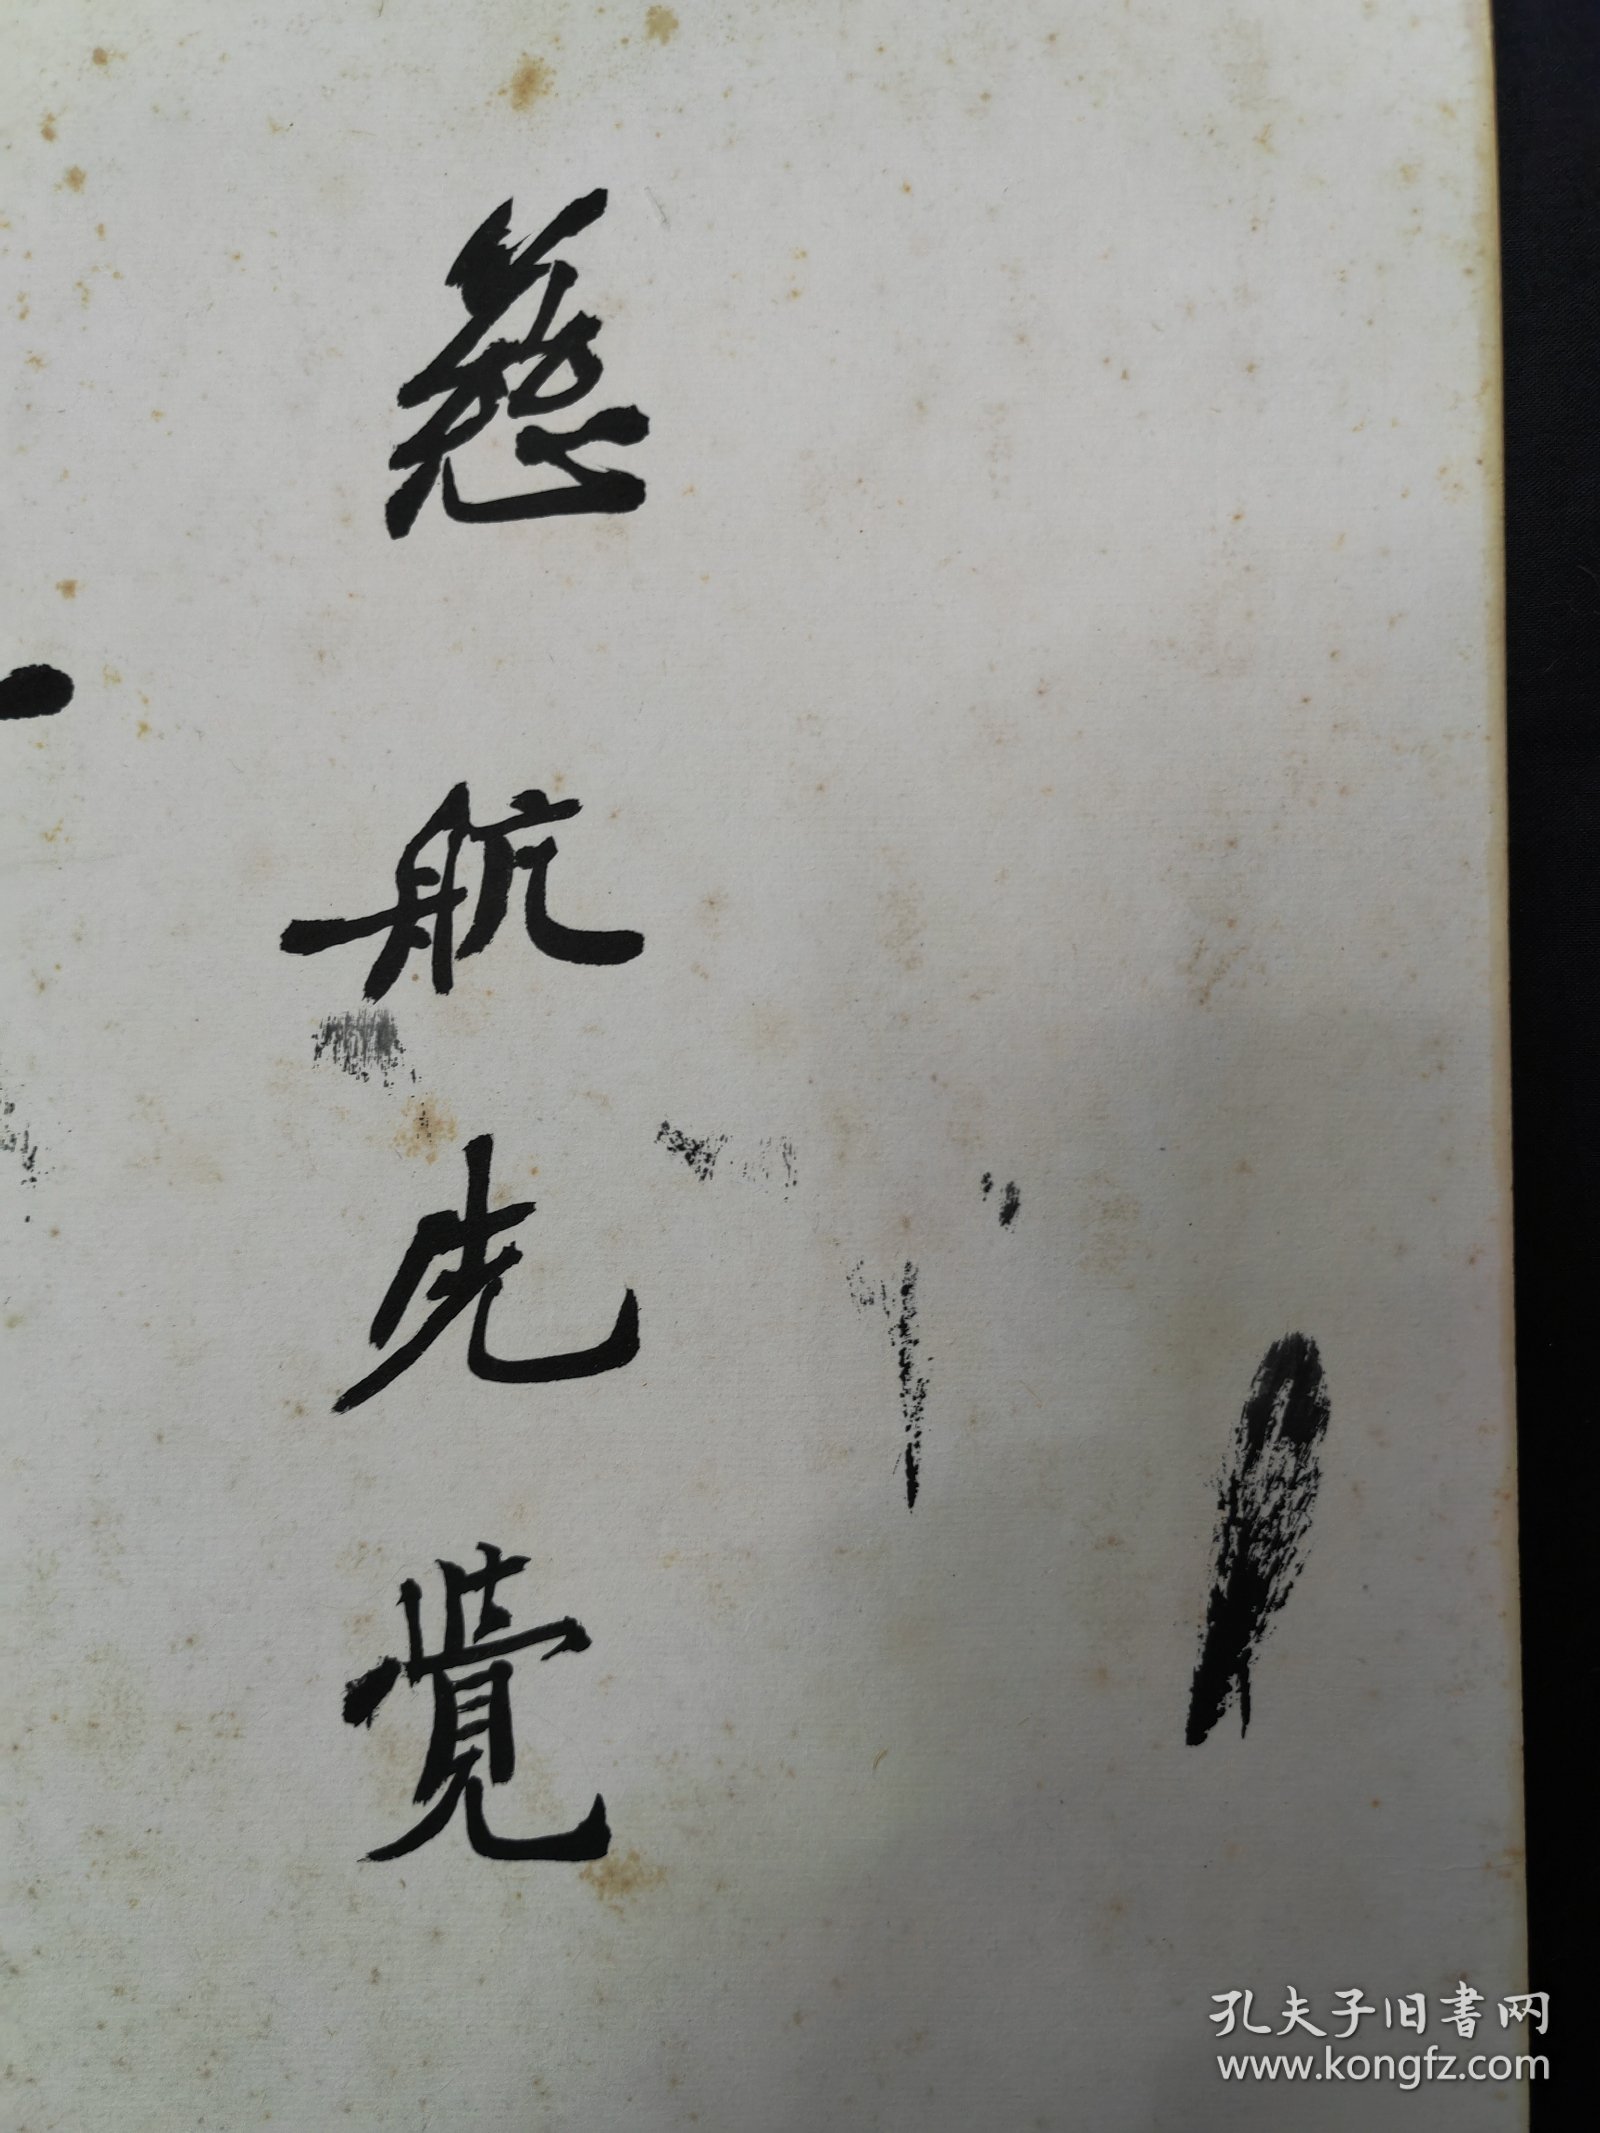 慈航先覺
孔夫子旧書网
www.kongfz.com